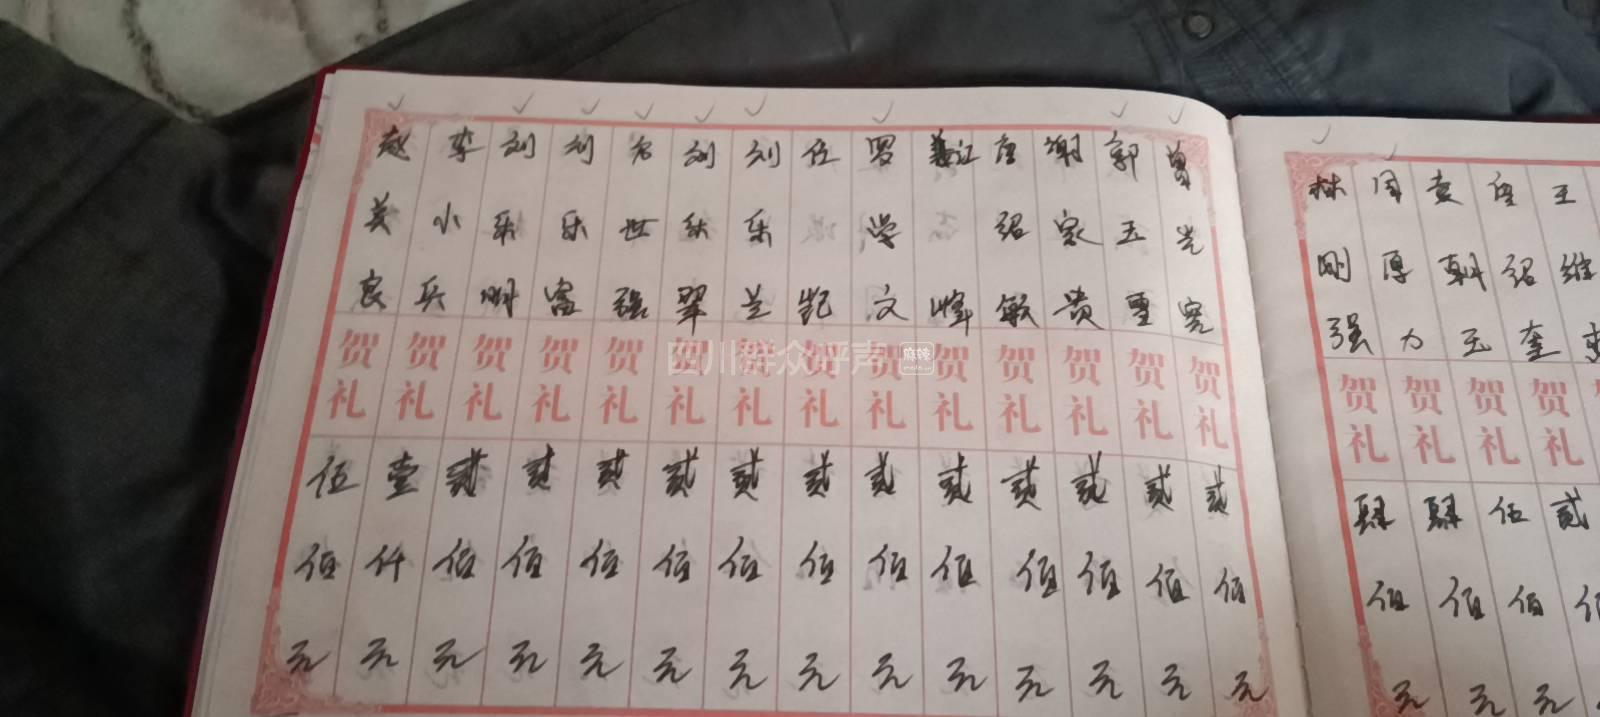 赵美良 贺礼 伍佰元
李小兵 贺礼 壹仟元
刘乐明 贺礼 贰佰元
刘乐富 贺礼 贰佰元
世强 贺礼 贰佰元
刘乐翠 贺礼 贰佰元
刘乐兰 贺礼 贰佰元
任凯 贺礼 贰佰元
罗学文 贺礼 贰佰元
江峰 贺礼 贰佰元
唐绍敏 贺礼 贰佰元
谢家贵 贺礼 贰佰元
郭玉 贺礼 贰佰元
曾光 贺礼 贰佰元
林刚强 贺礼 肆佰元
周厚力 贺礼 肆佰元
袁朝玉 贺礼 伍佰元
唐绍奎 贺礼 贰
王维
四川群众呼声 麻辣